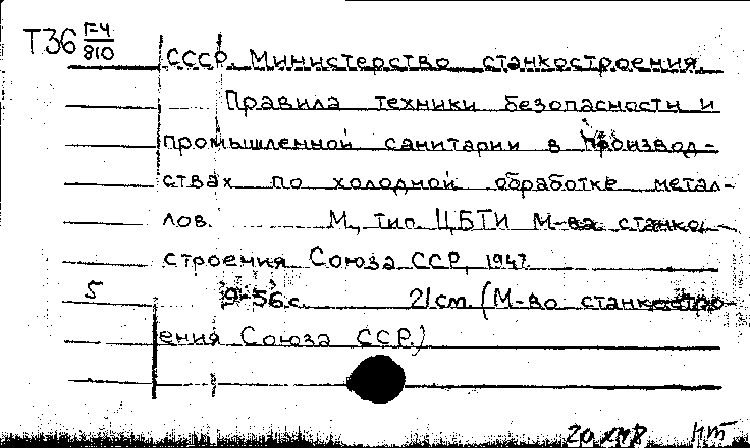 Т36 Г-4/810
СССР. Министерство станкостроения.
Правила техники безопасности и
промышленной санитарии в производ-
ствах по холодной обработке метал-
лов. М., тип. ЦБТИ М-ва станко-
строения Союза ССР, 1947.
5 56 с. 21 см. (М-во станкостро-
ения Союза ССР.)
нт